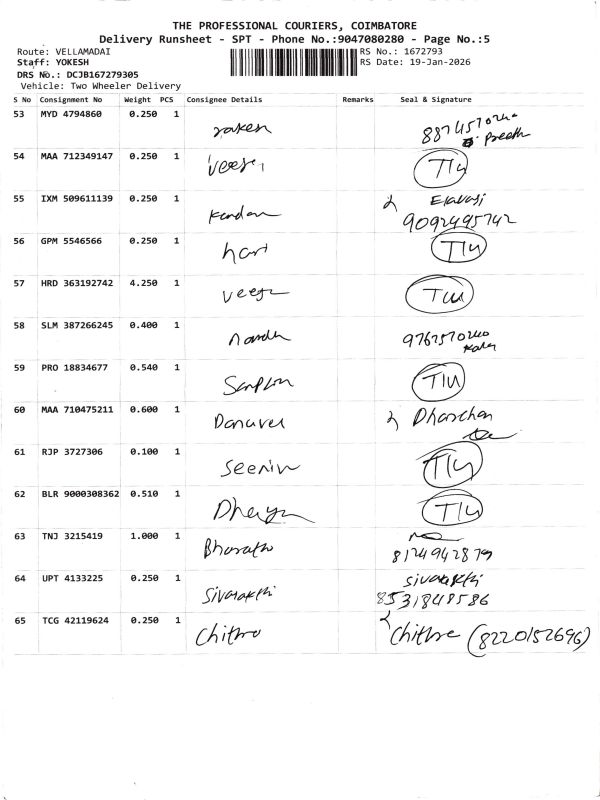 THE PROFESSIONAL COURIERS, COIMBATORE
Delivery Runsheet - SPT - Phone No.:9047080280 - Page No.:5
Route: VELLAMADAI RS No.: 1672793
Staff: YOKESH RS Date: 19-Jan-2026
DRS No.: DCJB167279305
Vehicle: Two Wheeler Delivery
S No Consignment No Weight PCS Consignee Details Remarks Seal & Signature
53 MYD 4794860 0.250 1
54 MAA 712349147 0.250 1
55 IXM 509611139 0.250 1 Kandan
9092495742
56 GPM 5546566 0.250 1 hari
57 HRD 363192742 4.250 1
58 SLM 387266245 0.400 1
59 PRO 18834677 0.540 1
60 MAA 710475211 0.600 1 Dharschan
61 RJP 3727306 0.100 1
62 BLR 9000308362 0.510 1
63 TNJ 3215419 1.000 1 Bharath
8124942879
64 UPT 4133225 0.250 1 Sivasakthi Sivasakthi
8531848586
65 TCG 42119624 0.250 1 Chithra Chithra (8220152696)